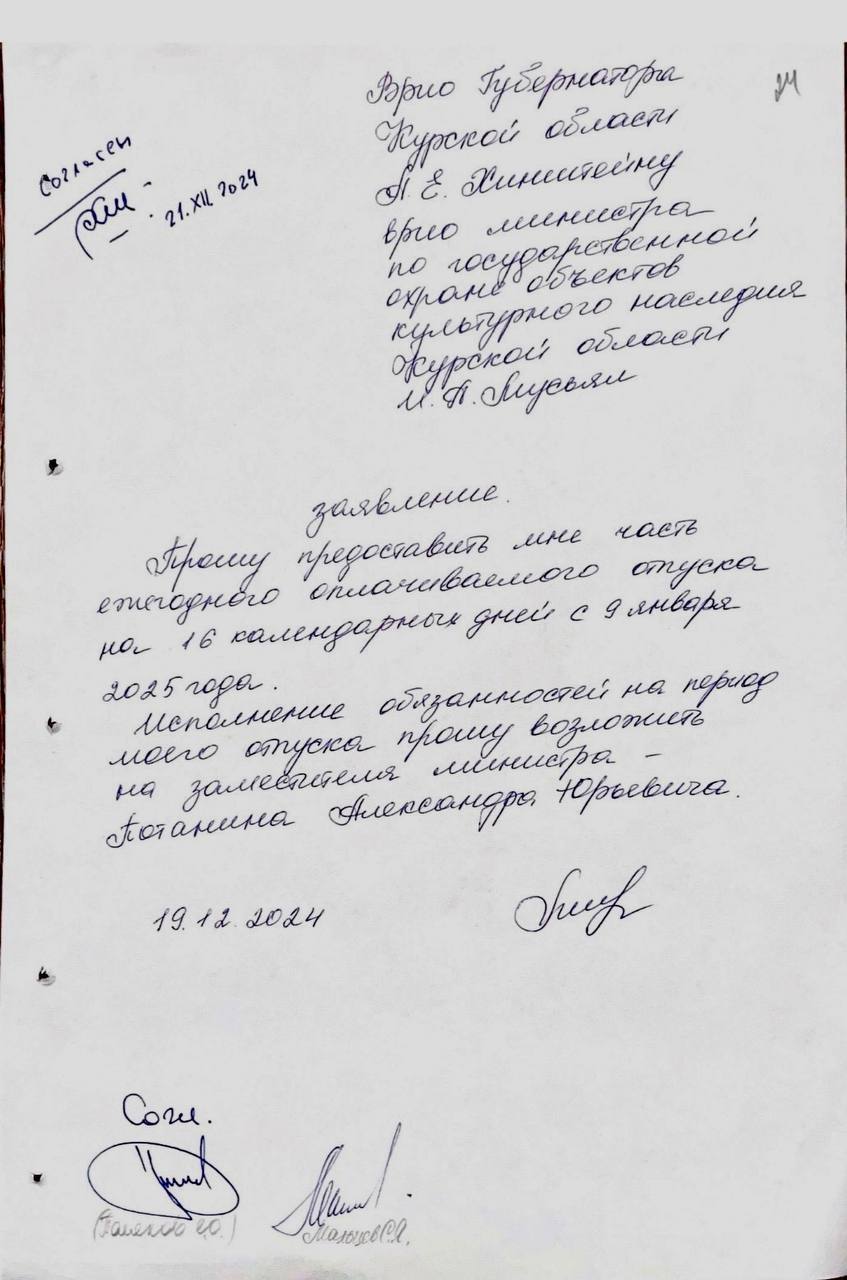 24
Врио Губернатора
Курской области
А. Е. Хинштейну
врио министра
по государственной
охране объектов
культурного наследия
Курской области
И. П. Мусьял
Согласен
21.XII.2024
заявление.
Прошу предоставить мне часть
ежегодного оплачиваемого отпуска
на 16 календарных дней с 9 января
2025 года.
Исполнение обязанностей на период
моего отпуска прошу возложить
на заместителя министра –
Потанина Александра Юрьевича.
19.12.2024
Согл.